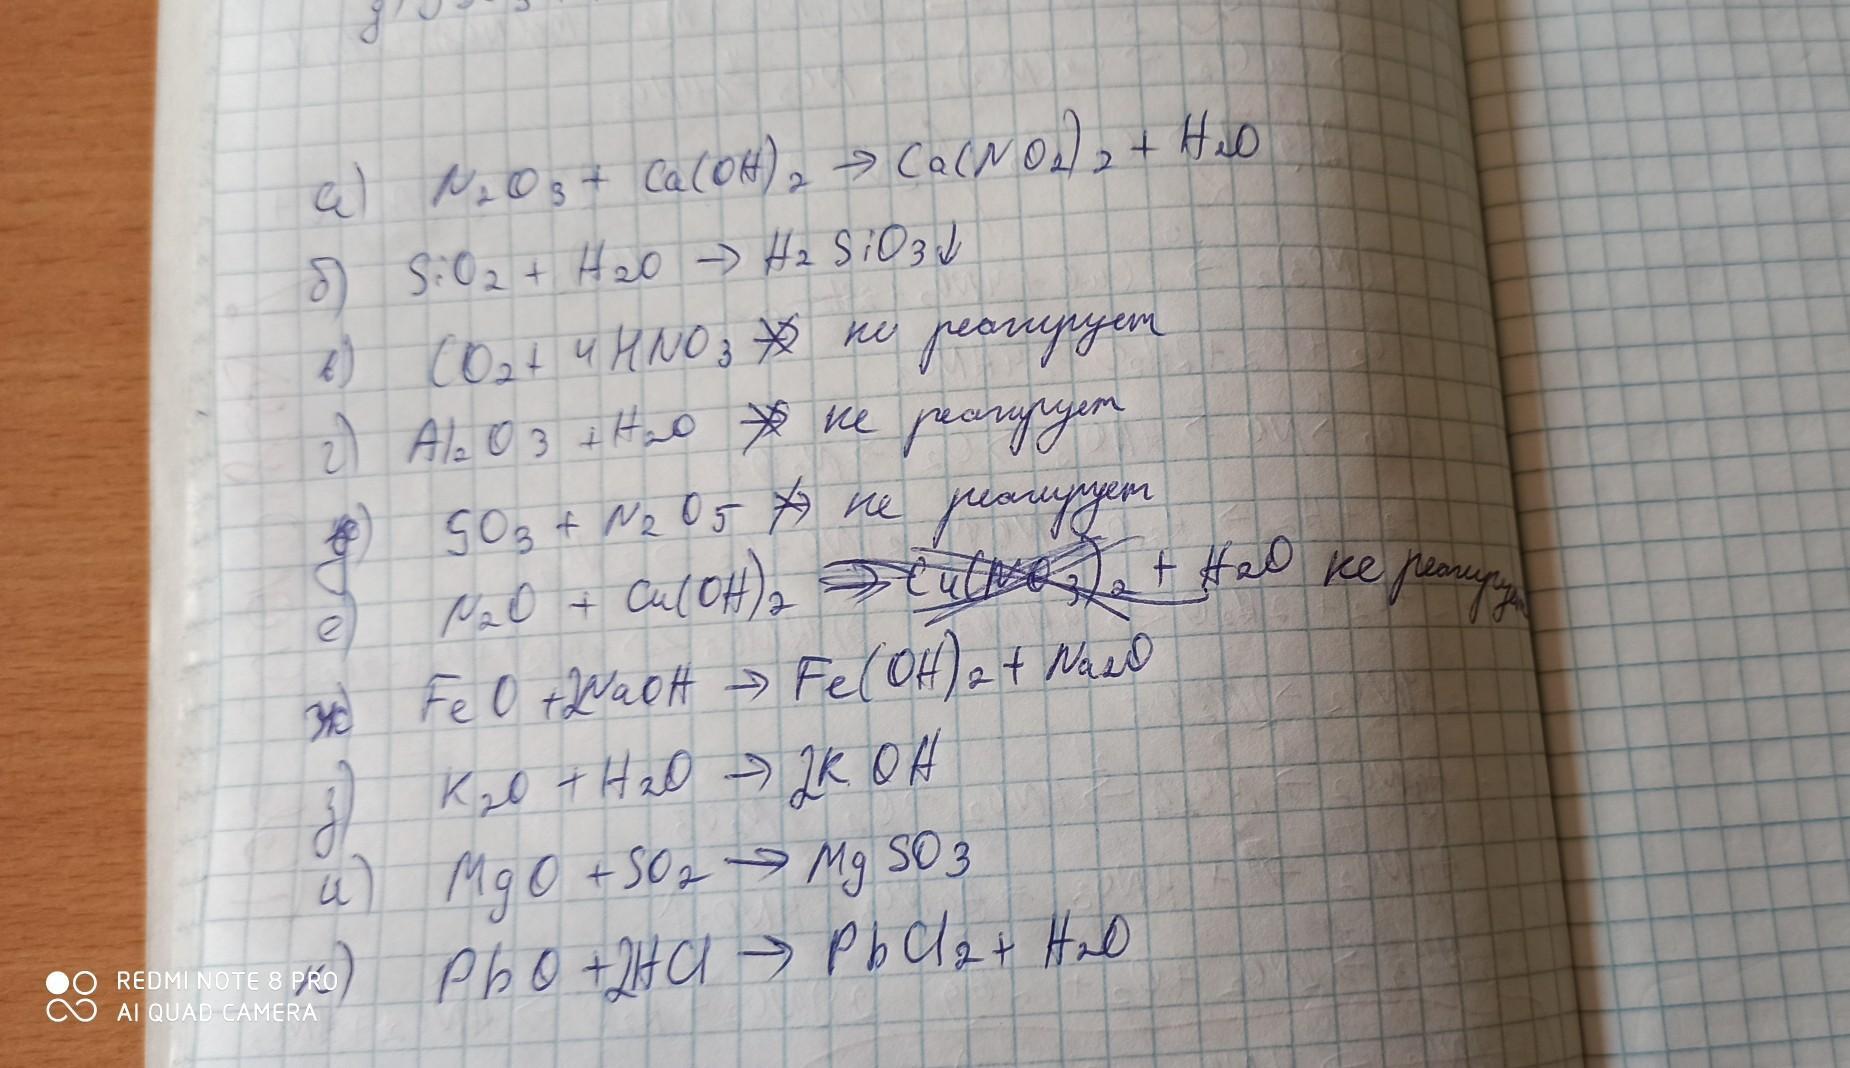 а) N₂O₃ + Ca(OH)₂ → Ca(NO₂)₂ + H₂O
б) SiO₂ + H₂O → H₂SiO₃↓
в) CO₂ + 4HNO₃ ↛ не реагирует
г) Al₂O₃ + H₂O ↛ не реагирует
д) SO₃ + N₂O₅ ↛ не реагирует
е) N₂O + Cu(OH)₂ ⇒ Cu(NO₃)₂ + H₂O не реагирует
ж) FeO + 2NaOH → Fe(OH)₂ + Na₂O
з) K₂O + H₂O → 2KOH
и) MgO + SO₂ → MgSO₃
к) PbO + 2HCl → PbCl₂ + H₂O
REDMI NOTE 8 PRO
AI QUAD CAMERA